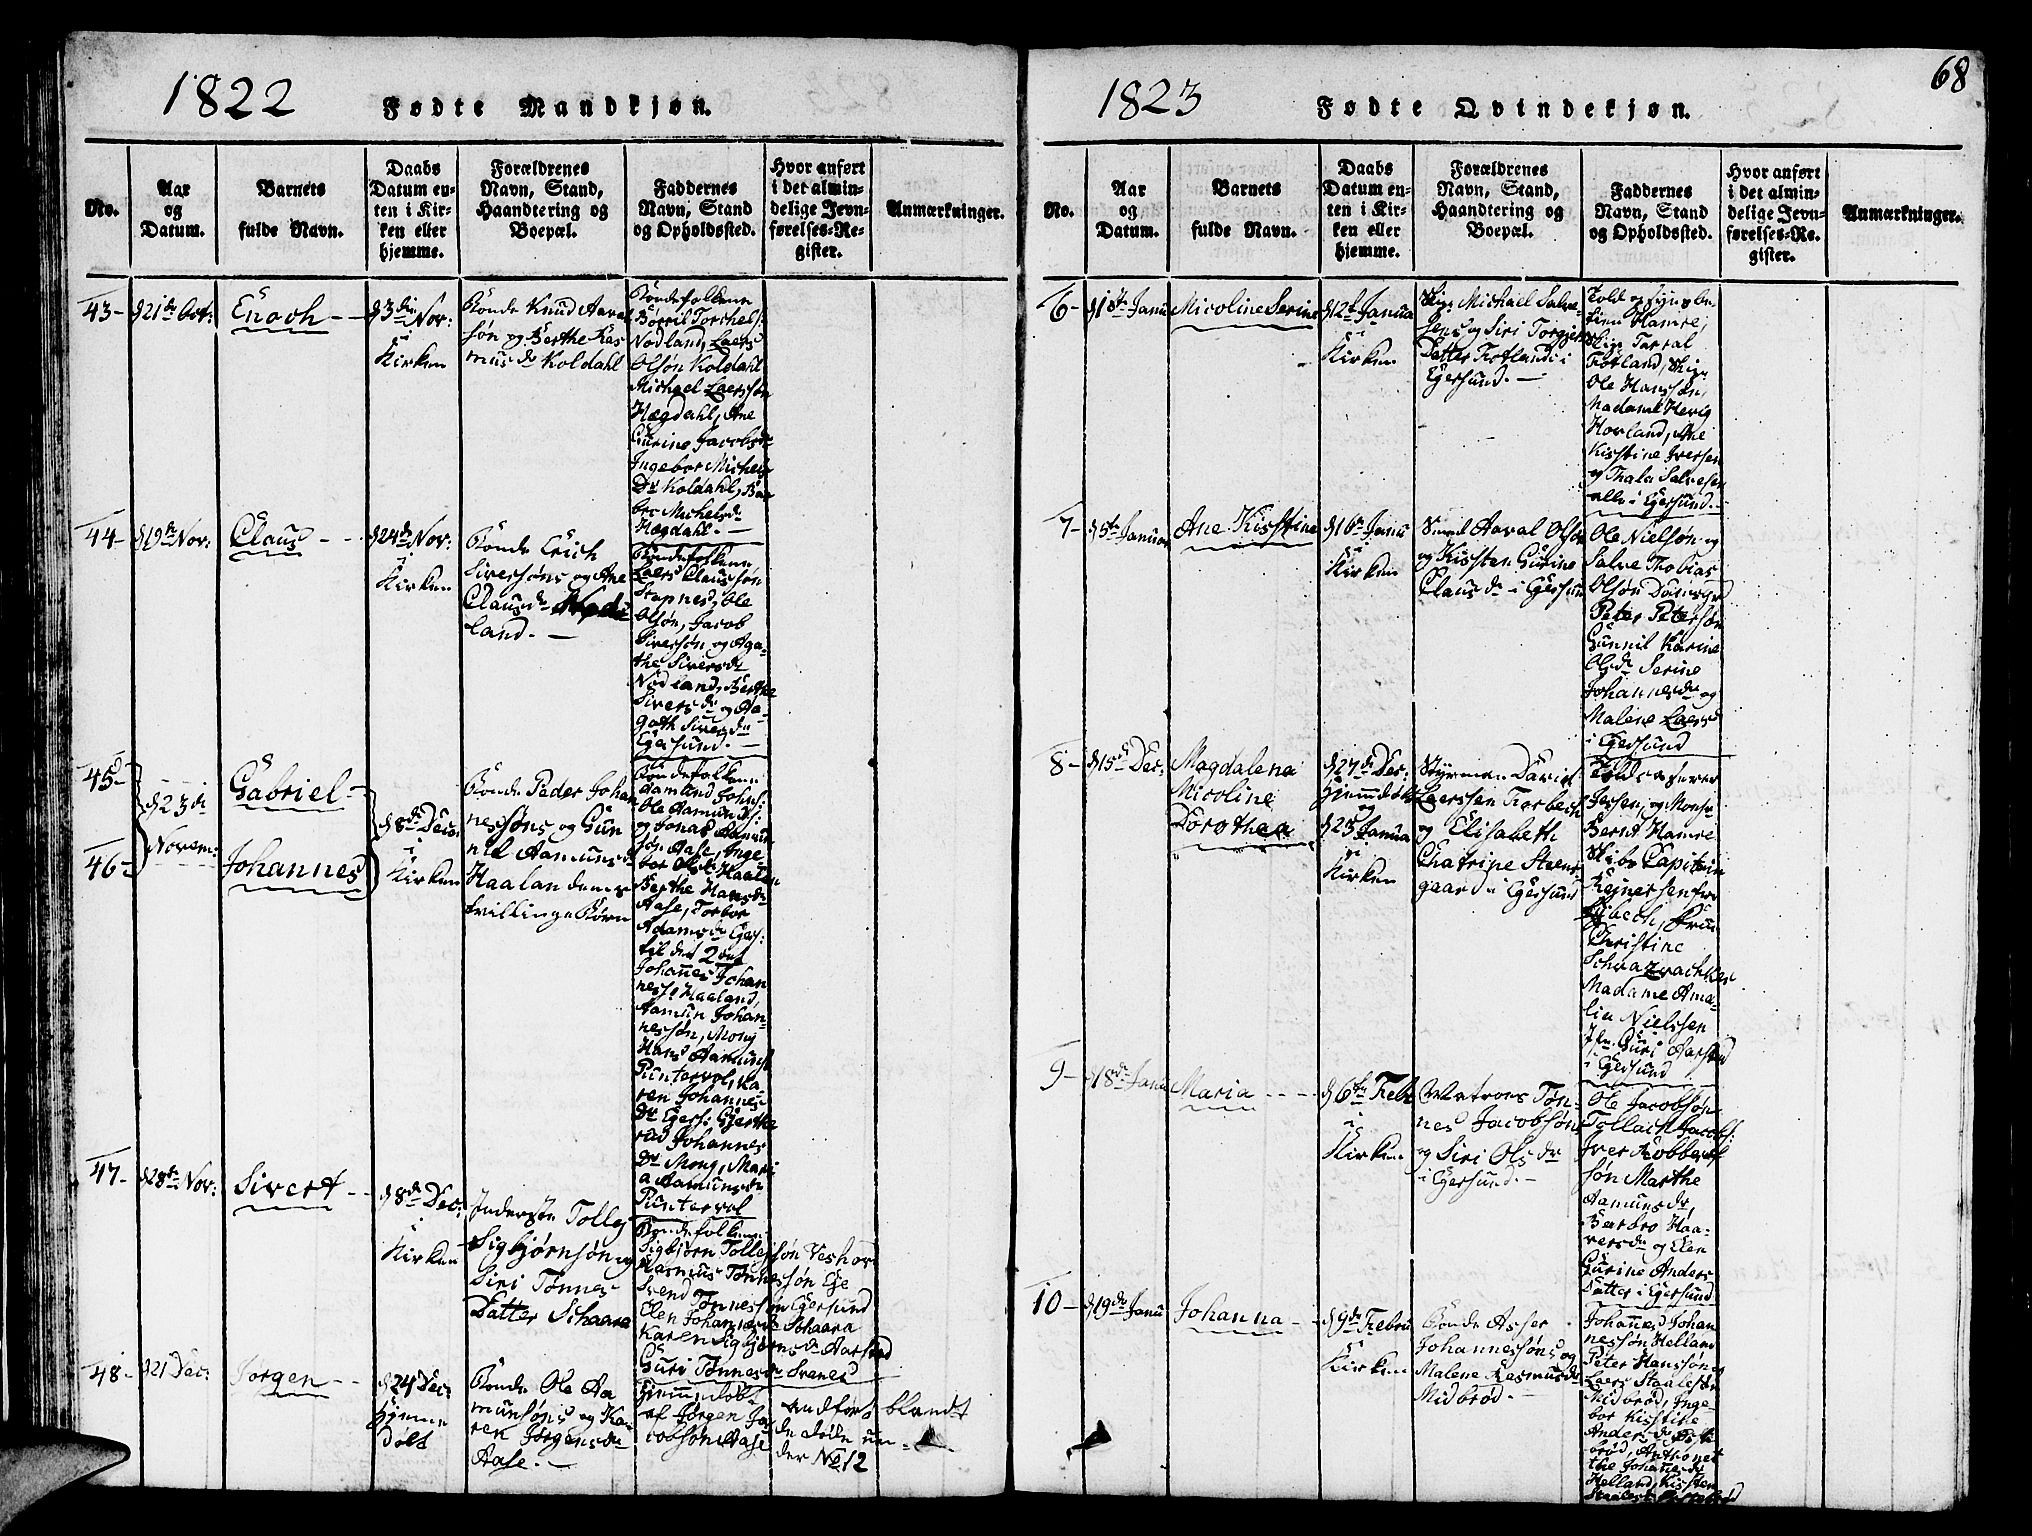 1822
Fødte Mandkjøn.
No.
Aar
og
Datum.
Barnets
fulde Navn.
Daabs
Datum en-
ten i Kir-
ken eller
hjemme.
Forældrenes
Navn, Stand,
Haandtering og
Boepæl.
Faddernes
Navn, Stand
og Opholdssted.
Hvor anført
i det almin-
delige Jevn-
førelses-Re-
gister.
Anmærkninger.
43-
d 21de Oct:
Enoch
d 3die Nov:
i
Kirken
Bonde Knud Aaval
søn og Berthe Ras
musdr Koldahl
Bondefolkene
Børril Torchels:
Nodland, Laers
Olsøn Koldahl
Michael Laerssøn
Hægdahl, Ane
Gurine Jacobsdr
Ingebor Michels
Dr Koldahl, Bar
bro Michelsdr
Hægdahl.
44-
d 19de Nov:
Claus
d 24de Nov:
i
Kirken
Bonde Erich
Siversøns og Ane
Clausdr Nod
land.
Bondefolkene
Laers Claussøn
Stapnes, Ole
Olsøn, Jacob
Siversøn og Aga-
the Siversdr
Nodland, Berthe
Siversdr og Aa-
gath Siversdr
Egersund.
45-
46-
d 23de
Novem:
Gabriel
Johannes
d 8de Dec:
i
Kirken
Bonde Peder Johan
nessøns og Gun
nil Aamunsdr
Haaland deres
tvillinge Børn
Bondefolkene
Aamund Johns:
Ole Aamunds:
og Jonas Aamun
søn Aase, Inge-
bor Olsdr Haalan
Berthe Hansdr
Aase, Torbor
Adamsdr Egers:
til det 2det
Johanes Johan
ness: Haaland,
Aamun Johan-
nessøn, Mong
Hans Aamuns:
Puntervol, Ka
ren Johannes
Dr Egers: Gjerthe
rud Johannes
Dr Mong, Mari
a Aamunsdr
Puntervol
47-
d 28de Nov:
Sivert
d 8de Dec:
i
Kirken
Inderste Tolleg
Sigbjørnsøn og
Siri Tønnes
Datter Schaara
Bondefolkene
Sigbjørn Tollegsøn Veshov
Rasmus Tønnessøn Ege
Svend Tønnessøn Egersund
Elen Johannesdr Schaara
Karen Sigbjørnsdr Aarstad
Guri Tønnesdr Svanes
48-
d 21 Dec:
Jørgen
d 24 Dec:
hjemme
døbt
Bonde Ole Aa
munsøns og Ka
ren Jørgensdr
Aase.
Hiemmedøbt
af Jørgen Ja
cobsøn Aase
andført blandt
de døde un-
der No 12
1823
Fødte Qvindekjøn.
68
No.
Aar
og
Datum.
Barnets
fulde Navn.
Daabs
Datum en-
ten i Kir-
ken eller
hjemme.
Forældrenes
Navn, Stand,
Haandtering og
Boepæl.
Faddernes
Navn, Stand
og Opholdssted.
Hvor anført
i det almin-
delige Jevn-
førelses-Re-
gister.
Anmærkninger.
6-
d 1ste Janu
Micoline Serine
d 12te Janua
i
Kirken
Skip: Michael Salve-
sens og Siri Torgjers
Datter Fotland i
Egersund.
Hamre,
Skip: Tarral
Fotland, Skip:
Ole Hanssøn,
Madame Hervig
Hovland, Ane
Kisstine Iversen
og Thala Salvesen
alle i Egersund.
7-
d 5te Januar
Ane Kisstine
d 16de Janu
i
Kirken
Aaval Olsøn
og Kissten Gurine
Clausdr i Egersun
Ole Nielsøn og
Salve Thobias
Olsøn
Peter Petersøn
Gunnil Karine
Olsdr Serine
Johannesdr og
Malene Laersdr
i Egersund
8-
d 15de Dec:
Magdalena
Nicoline
Dorothea
d 27de Dec:
hjemmedøbt
og
d 23 Janua
i
Kirken
Styrman David
Laerssen Torbech
og Elisabeth
Chatrine Steens
gaard i Egersund
Jessen, og Monsr
Bernt Hamre
Skibs Capitain
Rejnersen
Jacob, Frue
Christine
Schvazvachker
Madame Ama-
lia Nielssen
Jfr. Guri Aarstad
i Egersund
9-
d 18de Janu
Maria
d 6te Feb:
i
Kirken
Matros Tøn-
nes Jacobsøn
og Siri Olsdr
i Egersund.
Ole Jacobsøn
Tollach Jacobs:
Iver Robbert
søn Marthe
Aamunsdr,
Barbro Haa-
versdr og Elen
Gurine Anders
Datter i Egersund
10-
d 19de Janu
Johanna
d 9de Febru
i
Kirken
Bonde Asser
Johannessøns og
Malene Rasmusdr
Midbrød
Johanes Johan
nessøn Helland
Peter Hanssøn og
Laers Staalesøn
Midbrød, Inge-
bor Kisstine
Andersdr Mid-
brød, Anthonet
the Johanesdr
Helland, Kissten